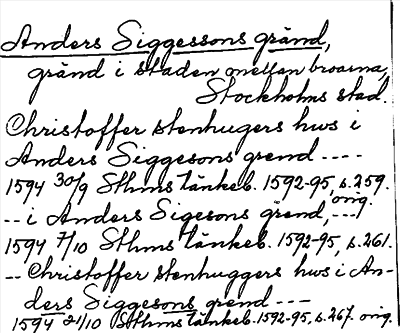 Anders Siggessons gränd,
gränd i staden mellan broarna,
Stockholms stad.
Christoffer stenhugers hws i
Anders Siggesons grend ----
1594 30/9 Sthms tänkeb. 1592-95, s. 259.
orig.
-- i Anders Sigesons grend, ---
1594 7/10 Sthms tänkeb. 1592-95, s. 261.
-- Christoffer stenhuggers hws i An-
ders Siggesons grend ---
1594 21/10 Sthms tänkeb. 1592-95, s. 267. orig.